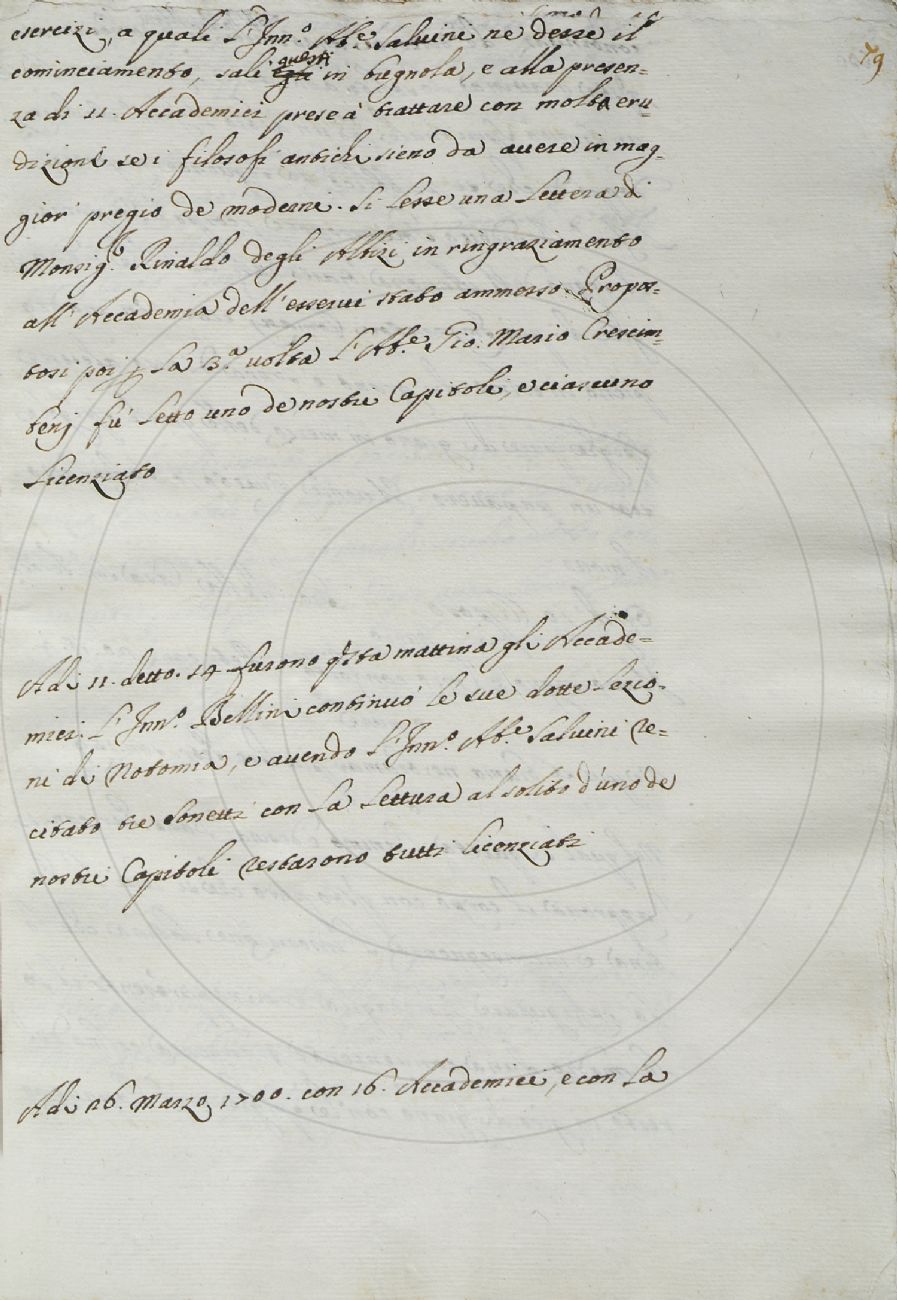 79
esercizi, a quali l'Inn.º Ab.e Salvini ne desse il
cominciamento, salì egli questi in bugnola, e alla presen=
za di 11. Accademici prese à trattare con molta eru
dizione se i filosofi antichi sieno da avere in mag=
gior pregio de moderni. Si lesse una Lettera di
Monsig.r Rinaldo degli Albizi in ringraziamento
all'Accademia dell'esservi stato ammesso. Propos=
tosi poi p la 3.a volta l'Ab.e Gio. Mario Crescim=
beni fù letto uno de nostri Capitoli, e ciascuno
licenziato
Adi 11. detto. 14 furono q.sta mattina gli Accade=
mici. L'Inn.º Bellini continuò le sue dotte lezio=
ni di Notomia, e avendo l'Inn.º Ab.e Salvini re=
citato tre Sonetti con la lettura al solito d'uno de
nostri Capitoli restarono tutti licenziati
Adi 26. Marzo 1700. con 16. Accademici, e con la